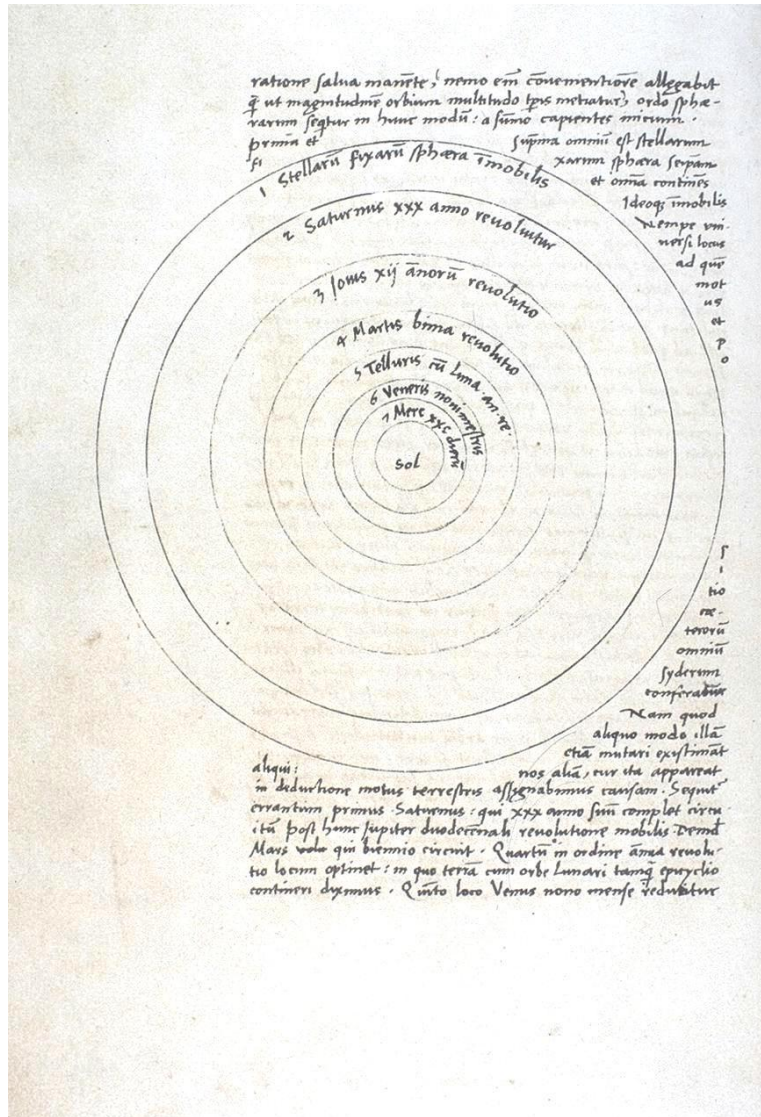 ratione salva manēte, nemo em̄ cōvenientiorē allegabit
q̄ ut magnitudinē orbium multitudo tp̄is metiatur, ordo sphæ-
rarum seq̄tur in hunc modū: a sūmo capientes inicium.
prima et sup̄ma omniū est stellarum
fi xarum sphæra seip̄am
et omīa continēs
Ideoq; īmobilis
Nempe uni-
versi locus
ad quē
mot
us
et
p
o
1 Stellarū fixarū sphæra imobilis
2 Saturnus xxx anno revoluitur
3 Iovis xij añorū revolutio
4 Martis bima revolutio
5 Telluris cū Luna . an . re .
6 Veneris nonimestris
7 Merc xxc dierū
Sol
s
i
tio
cæ-
terorū
omniū
syderum
conferatur
Nam quod
aliquo modo illā
etiā mutari existimāt
aliqui: nos aliā, cur ita appareat
in deductione motus terrestris assignabimus causam. Sequit̄
errantium primus Saturnus: qui xxx anno suū complet circu-
itū post hunc Jupiter duodecenali revolutione mobilis Deind̄
Mars qui biennio circuit. Quartū in ordine ānua revolu-
tio locum optinet: in quo terrā cum orbe Lunari tamq̄ epicyclio
contineri diximus. Quīto loco Venus nono mense reducitur